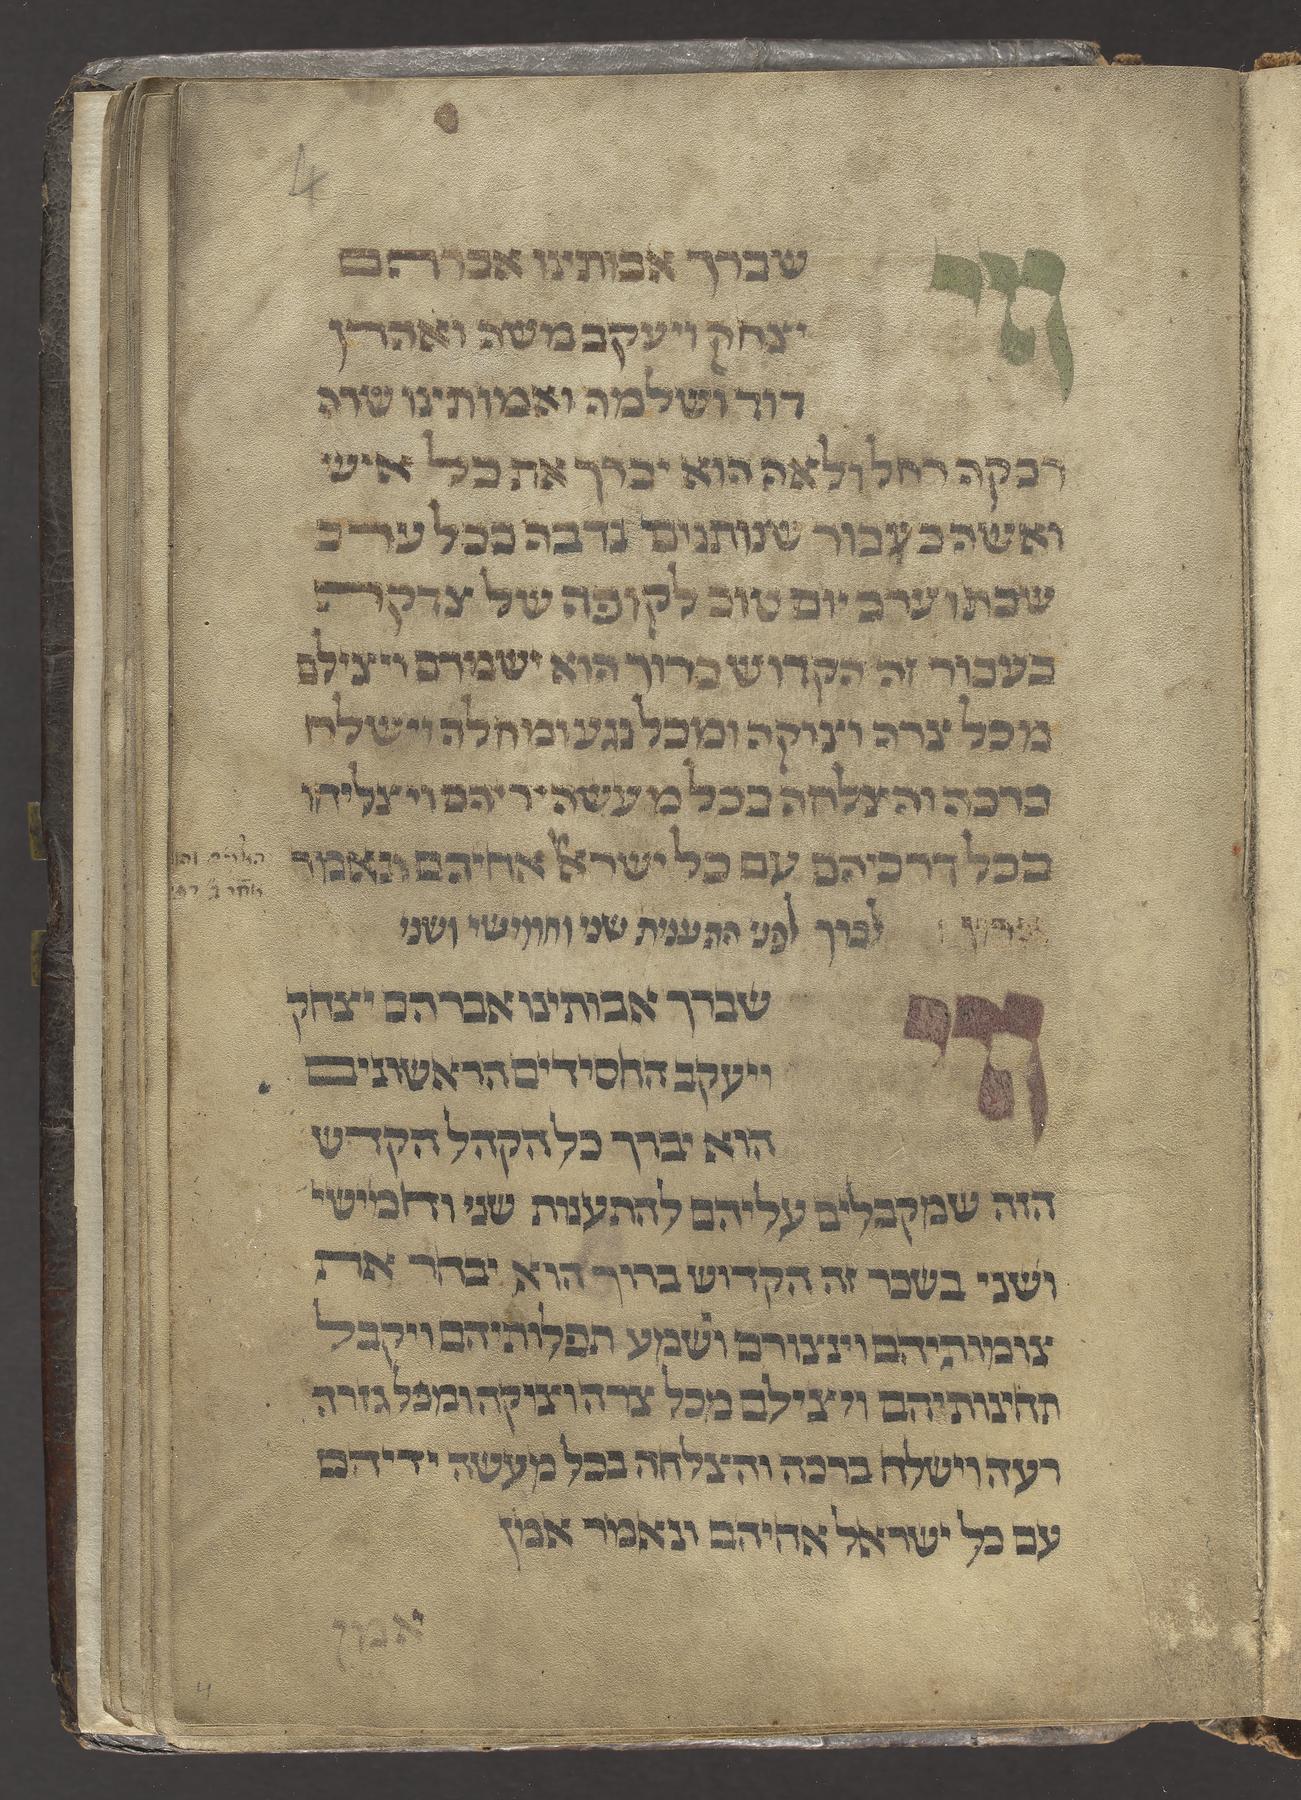 4
מי שברך אבותינו אברהם
יצחק ויעקב משה ואהרן
דוד ושלמה ואמותינו שרה
רבקה רחל ולאה הוא יברך את כל איש
ואשה בעבור שנותנים נדבה בכל ערב
שבת וערב יום טוב לקופה של צדקה
בעבור זה הקדוש ברוך הוא ישמרם ויצילם
מכל צרה וצוקה ומכל נגע ומחלה וישלח
ברכה והצלחה בכל מעשה ידיהם ויצליחו
בכל דרכיהם עם כל ישראל אחיהם ונאמר
לברך לפני התענית שני וחמישי ושני
מי שברך אבותינו אברהם יצחק
ויעקב החסידים הראשונים
הוא יברך כל הקהל הקדש
הזה שמקבלים עליהם להתענות שני וחמישי
ושני בשכר זה הקדוש ברוך הוא יבחר את
צומותיהם וינצורם וישמע תפלותיהם ויקבל
תחינותיהם ויצילם מכל צרה וצוקה ומכל גזרה
רעה וישלח ברכה והצלחה בכל מעשה ידיהם
עם כל ישראל אחיהם ונאמר אמן
אמן
4